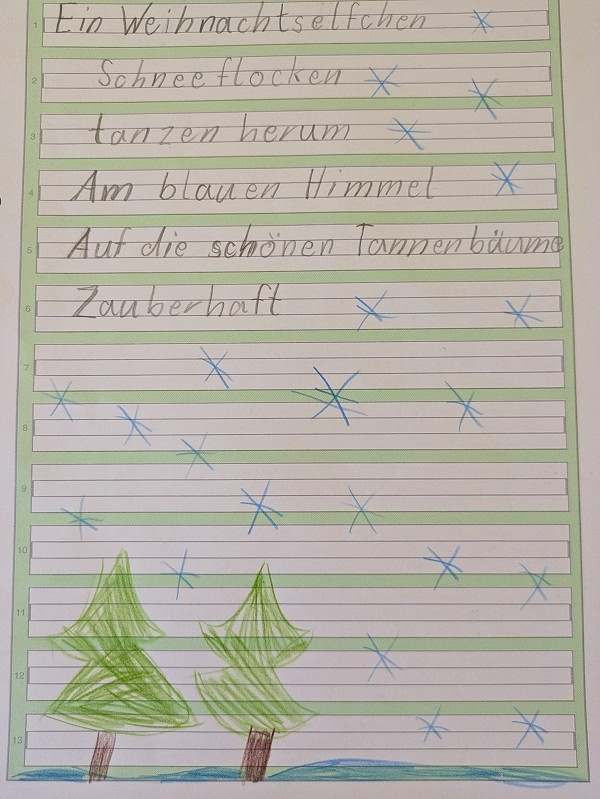 1 Ein Weihnachtselfchen
2 Schneeflocken
3 tanzen herum
4 Am blauen Himmel
5 Auf die schönen Tannenbäume
6 Zauberhaft
7
8
9
10
11
12
13